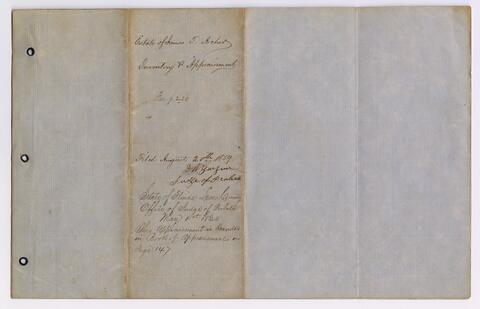 Estate of James T. Archer
Inventory & Appraisement
Filed August 20th 1859
Judge of Probate
State of Leon County
Office of Judge of Probate
May 1860
This Appraisement is Recorded
in Book of Appraisements on
Page 147